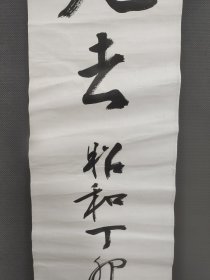 去昭和丁卯